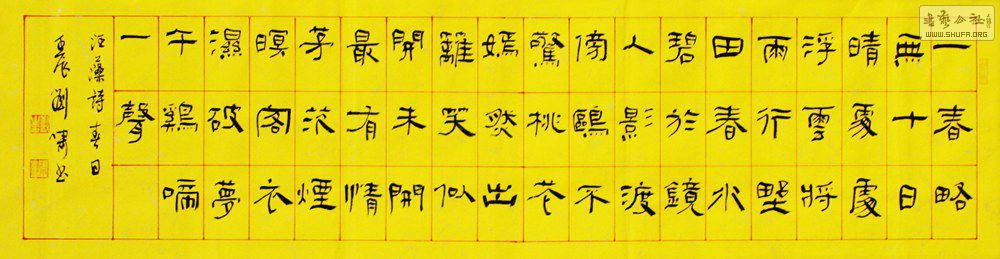 一春略
無十日
晴處處
浮雲將
雨行野
田春水
碧於鏡
人影渡
傍鷗不
驚桃花
嫣然出
離笑似
開未開
最有情
茅茨煙
暝客衣
濕破夢
午鷄啼
一聲
汪藻詩春日
書藝公社
WWW.SHUFA.ORG